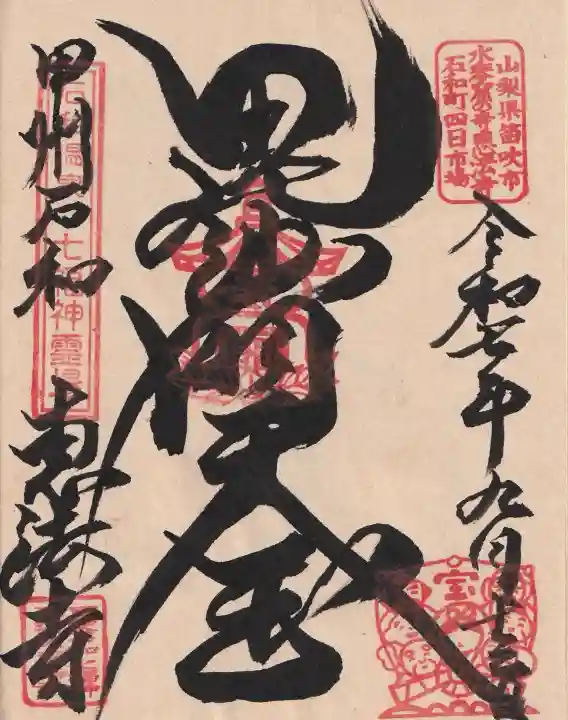 山梨県笛吹市
恵法寺
石和町四日市場
令和七年九月十
宝
毘沙門天
甲州石和 恵法寺
石和温泉郷七福神霊場